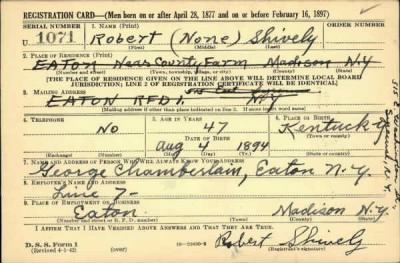 REGISTRATION CARD—(Men born on or after April 28, 1877 and on or before February 16, 1897)
SERIAL NUMBER
1. NAME (Print)
ORDER NUMBER
U 1071
Robert (None) Shively
(First) (Middle) (Last)
2. PLACE OF RESIDENCE (Print)
EATON Near County Farm Madison N.Y
(Number and street) (Town, township, village, or city) (County) (State)
[THE PLACE OF RESIDENCE GIVEN ON THE LINE ABOVE WILL DETERMINE LOCAL BOARD
JURISDICTION; LINE 2 OF REGISTRATION CERTIFICATE WILL BE IDENTICAL]
3. MAILING ADDRESS
EATON RFD 1 N.Y
(Mailing address if other than place indicated on line 2. If same insert word same)
4. TELEPHONE
5. AGE IN YEARS
6. PLACE OF BIRTH
NO
47
Kentucky
DATE OF BIRTH
(Town or county)
Aug 4 1894
(Exchange) (Number)
(Mo.) (Day) (Yr.)
(State or country)
7. NAME AND ADDRESS OF PERSON WHO WILL ALWAYS KNOW YOUR ADDRESS
George Chamberlain, Eaton N.Y.
8. EMPLOYER'S NAME AND ADDRESS
Line 7-
9. PLACE OF EMPLOYMENT OR BUSINESS
Eaton Madison N.Y.
(Number and street or R. F. D. number) (Town) (County) (State)
I AFFIRM THAT I HAVE VERIFIED ABOVE ANSWERS AND THAT THEY ARE TRUE.
D. S. S. Form 1
(Revised 4-1-42) (over)
Robert Shively
(Registrant's signature)